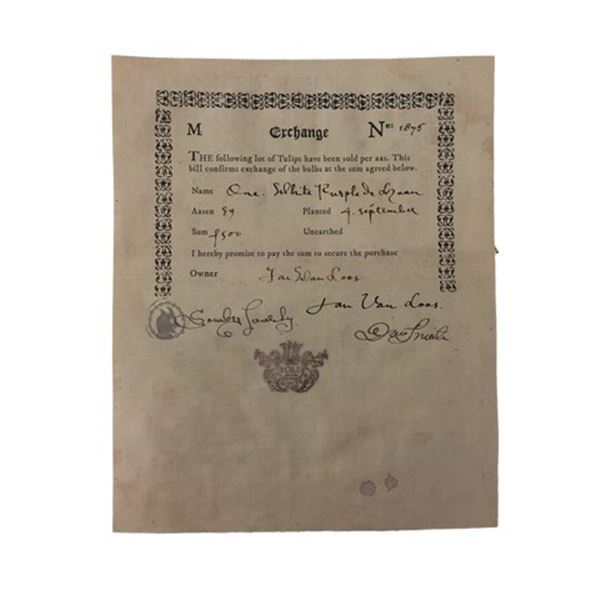 M Exchange No: 1876
THE following lot of Tulips have been sold per aas. This
bill confirms exchange of the bulbs at the sum agreed below.
Name One. White Purple de Haan
Aasen 89 Planted 4. september
Sum Unearthed
I hereby promise to pay the sum to secure the purchase
Owner Jan Van Loos
Jan Van Loos.
SOLD